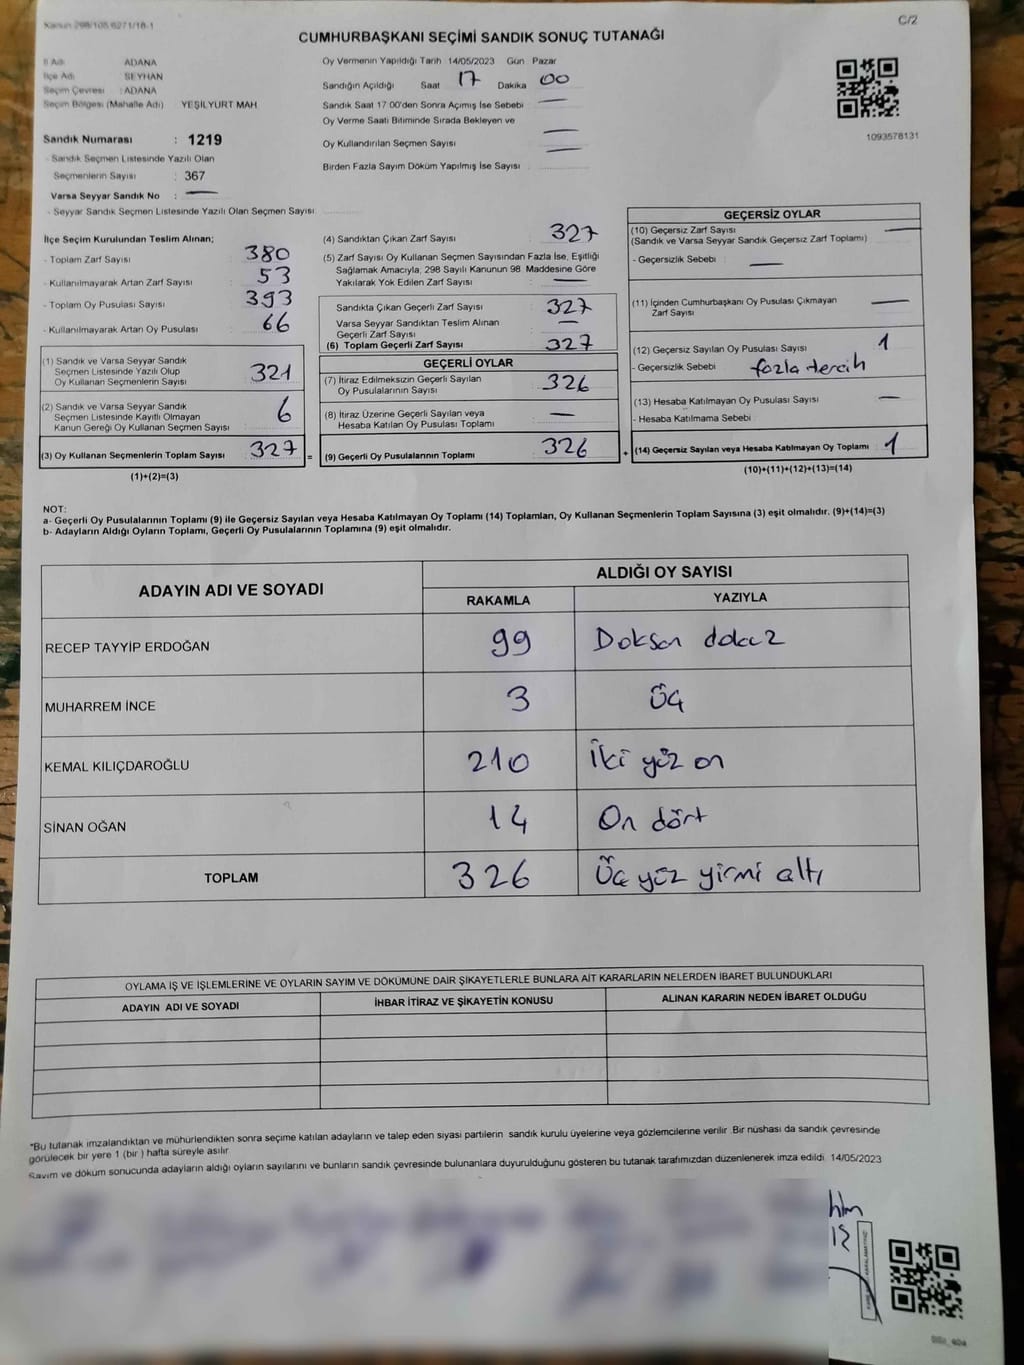 Kanun 298/105,6271/18-1
C/2
CUMHURBAŞKANI SEÇİMİ SANDIK SONUÇ TUTANAĞI
İl Adı ADANA
İlçe Adı SEYHAN
Seçim Çevresi : ADANA
Seçim Bölgesi (Mahalle Adı) YEŞİLYURT MAH.
Sandık Numarası : 1219
- Sandık Seçmen Listesinde Yazılı Olan
Seçmenlerin Sayısı : 367
Varsa Seyyar Sandık No : —
- Seyyar Sandık Seçmen Listesinde Yazılı Olan Seçmen Sayısı:
Oy Vermenin Yapıldığı Tarih 14/05/2023 Gün Pazar
Sandığın Açıldığı Saat 17 Dakika 00
Sandık Saat 17.00'den Sonra Açımış İse Sebebi —
Oy Verme Saati Bitiminde Sırada Bekleyen ve
Oy Kullandırılan Seçmen Sayısı —
Birden Fazla Sayım Döküm Yapılmış İse Sayısı —
1093578131
İlçe Seçim Kurulundan Teslim Alınan;
- Toplam Zarf Sayısı : 380
- Kullanılmayarak Artan Zarf Sayısı : 53
- Toplam Oy Pusulası Sayısı : 393
- Kullanılmayarak Artan Oy Pusulası : 66
(1) Sandık ve Varsa Seyyar Sandık
Seçmen Listesinde Yazılı Olup
Oy Kullanan Seçmenlerin Sayısı : 321
(2) Sandık ve Varsa Seyyar Sandık
Seçmen Listesinde Kayıtlı Olmayan
Kanun Gereği Oy Kullanan Seçmen Sayısı : 6
(3) Oy Kullanan Seçmenlerin Toplam Sayısı : 327
(1)+(2)=(3)
(4) Sandıktan Çıkan Zarf Sayısı : 327
(5) Zarf Sayısı Oy Kullanan Seçmen Sayısından Fazla İse, Eşitliği
Sağlamak Amacıyla, 298 Sayılı Kanunun 98. Maddesine Göre
Yakılarak Yok Edilen Zarf Sayısı : —
Sandıkta Çıkan Geçerli Zarf Sayısı : 327
Varsa Seyyar Sandıktan Teslim Alınan
Geçerli Zarf Sayısı : —
(6) Toplam Geçerli Zarf Sayısı : 327
GEÇERLİ OYLAR
(7) İtiraz Edilmeksizin Geçerli Sayılan
Oy Pusulalarının Sayısı : 326
(8) İtiraz Üzerine Geçerli Sayılan veya
Hesaba Katılan Oy Pusulası Toplamı : —
= (9) Geçerli Oy Pusulalarının Toplamı : 326
GEÇERSİZ OYLAR
(10) Geçersiz Zarf Sayısı :
(Sandık ve Varsa Seyyar Sandık Geçersiz Zarf Toplamı)
- Geçersizlik Sebebi : —
(11) İçinden Cumhurbaşkanı Oy Pusulası Çıkmayan : —
Zarf Sayısı
(12) Geçersiz Sayılan Oy Pusulası Sayısı : 1
- Geçersizlik Sebebi : fazla tercih
(13) Hesaba Katılmayan Oy Pusulası Sayısı : —
- Hesaba Katılmama Sebebi :
+ (14) Geçersiz Sayılan veya Hesaba Katılmayan Oy Toplamı : 1
(10)+(11)+(12)+(13)=(14)
NOT:
a- Geçerli Oy Pusulalarının Toplamı (9) ile Geçersiz Sayılan veya Hesaba Katılmayan Oy Toplamı (14) Toplamları, Oy Kullanan Seçmenlerin Toplam Sayısına (3) eşit olmalıdır. (9)+(14)=(3)
b- Adayların Aldığı Oyların Toplamı, Geçerli Oy Pusulalarının Toplamına (9) eşit olmalıdır.
ADAYIN ADI VE SOYADI ALDIĞI OY SAYISI
RAKAMLA YAZIYLA
RECEP TAYYİP ERDOĞAN 99 Doksan dokuz
MUHARREM İNCE 3 Üç
KEMAL KILIÇDAROĞLU 210 İki yüz on
SİNAN OĞAN 14 On dört
TOPLAM 326 Üç yüz yirmi altı
OYLAMA İŞ VE İŞLEMLERİNE VE OYLARIN SAYIM VE DÖKÜMÜNE DAİR ŞİKAYETLERLE BUNLARA AİT KARARLARIN NELERDEN İBARET BULUNDUKLARI
ADAYIN ADI VE SOYADI İHBAR İTİRAZ VE ŞİKAYETİN KONUSU ALINAN KARARIN NEDEN İBARET OLDUĞU
*Bu tutanak imzalandıktan ve mühürlendikten sonra seçime katılan adayların ve talep eden siyasi partilerin sandık kurulu üyelerine veya gözlemcilerine verilir. Bir nüshası da sandık çevresinde
görülecek bir yere 1 (bir ) hafta süreyle asılır.
Sayım ve döküm sonucunda adayların aldığı oyların sayılarını ve bunların sandık çevresinde bulunanlara duyurulduğunu gösteren bu tutanak tarafımızdan düzenlenerek imza edildi. 14/05/2023